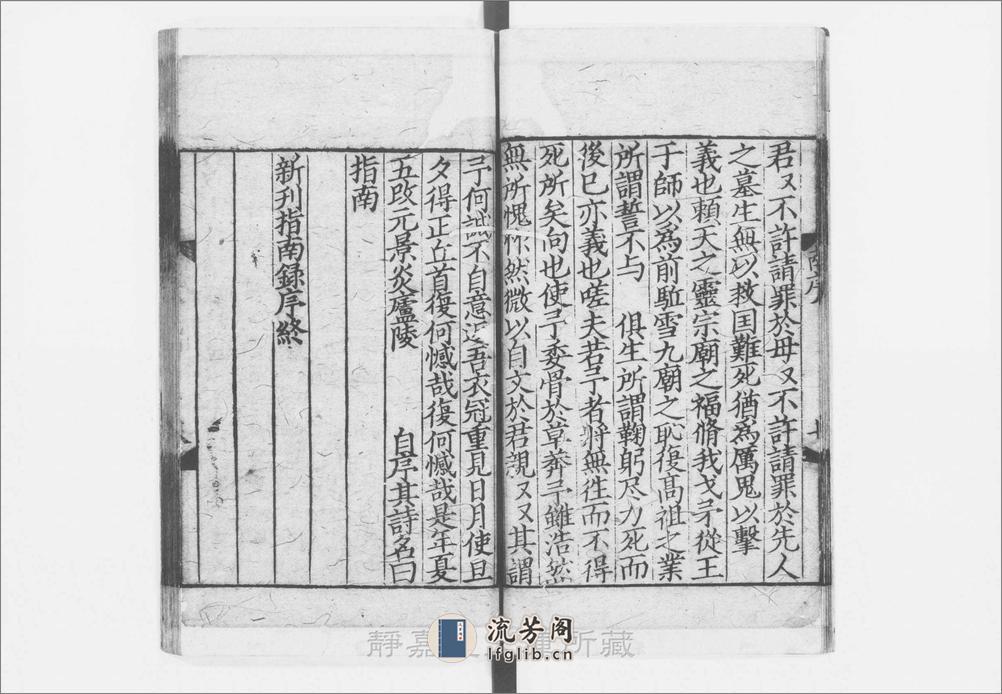 君又不許請罪於母又不許請罪於先人
之墓生無以救国難死猶為厲鬼以擊
義也頼天之靈宗廟之福脩我戈矛從王
于師以為前駈雪九廟之恥復髙祖之業
所謂誓不与 俱生所謂鞠躬尽力死而
後已亦義也嗟夫若予者将無徃而不得
死所矣向也使予委骨於草莽予雖浩然
無所愧怍然微以自文於君親又又其謂
予何誠不自意返吾衣冠重見日月使旦
夕得正丘首復何憾哉復何憾哉是年夏
五改元景炎廬陵 自序其詩名曰
指南
新刊指南録序終
流芳阁
lfglib.cn
靜嘉 所藏